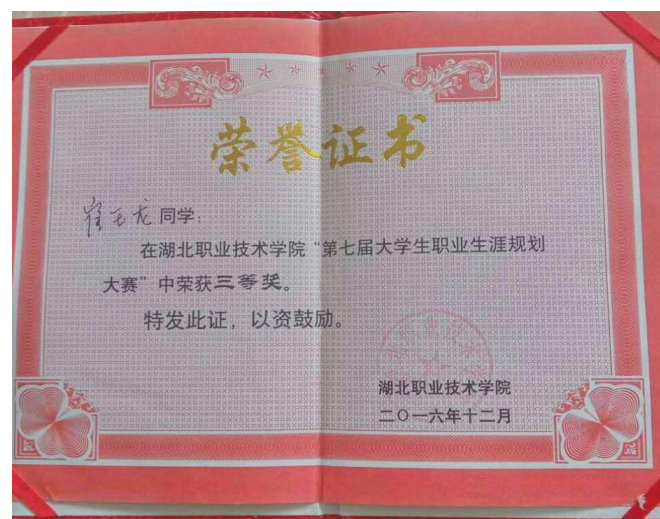 荣誉证书
崔玉龙 同学：
在湖北职业技术学院“第七届大学生职业生涯规划
大赛”中荣获三等奖。
特发此证，以资鼓励。
湖北职业技术学院
二〇一六年十二月